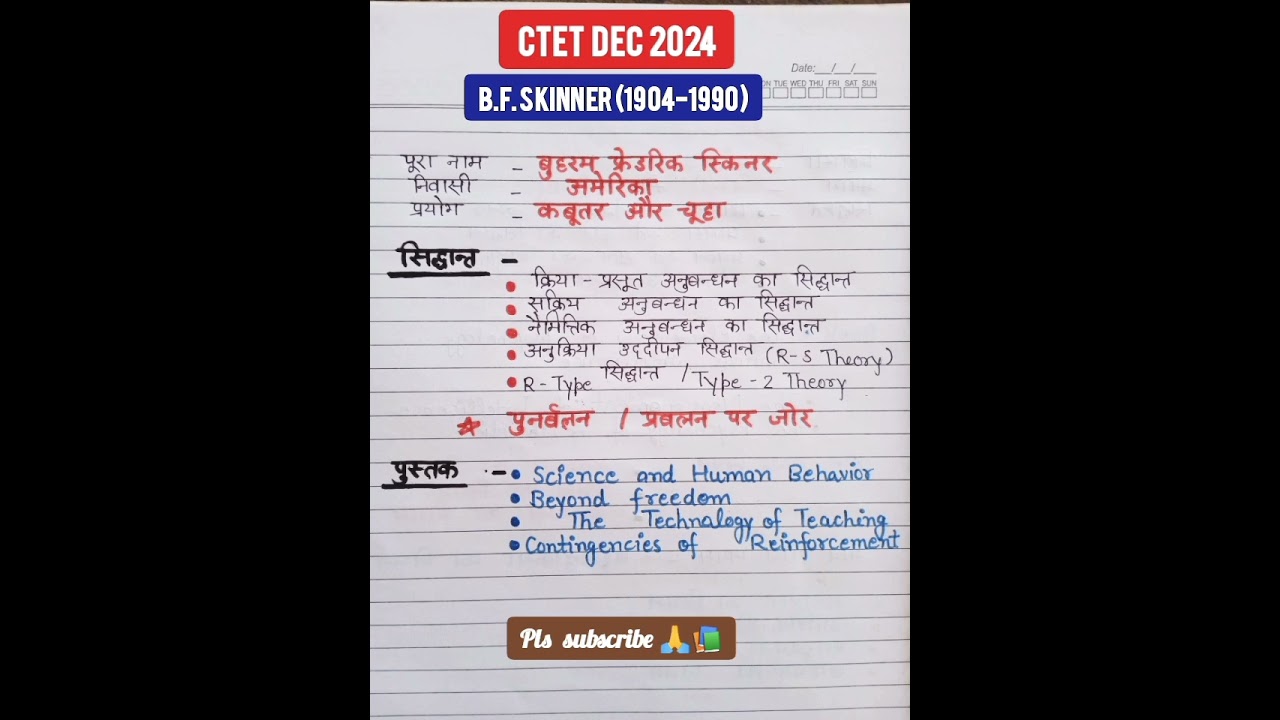 CTET DEC 2024
Date:__/__/__
B.F. SKINNER (1904-1990)
ON TUE WED THU FRI SAT SUN
पूरा नाम - बुहरम फ्रेडरिक स्किनर
निवासी - अमेरिका
प्रयोग - कबूतर और चूहा
सिद्धान्त -
• क्रिया - प्रसूत अनुबन्धन का सिद्धान्त
• सक्रिय अनुबन्धन का सिद्धान्त
• नैमित्तिक अनुबन्धन का सिद्धान्त
• अनुक्रिया उद्दीपन सिद्धान्त (R-S Theory)
• R-Type सिद्धान्त / Type-2 Theory
★ पुनर्बलन / प्रबलन पर जोर
पुस्तक - • Science and Human Behavior
• Beyond freedom
• The Technalogy of Teaching
• Contingencies of Reinforcement
Pls subscribe 🙏📚